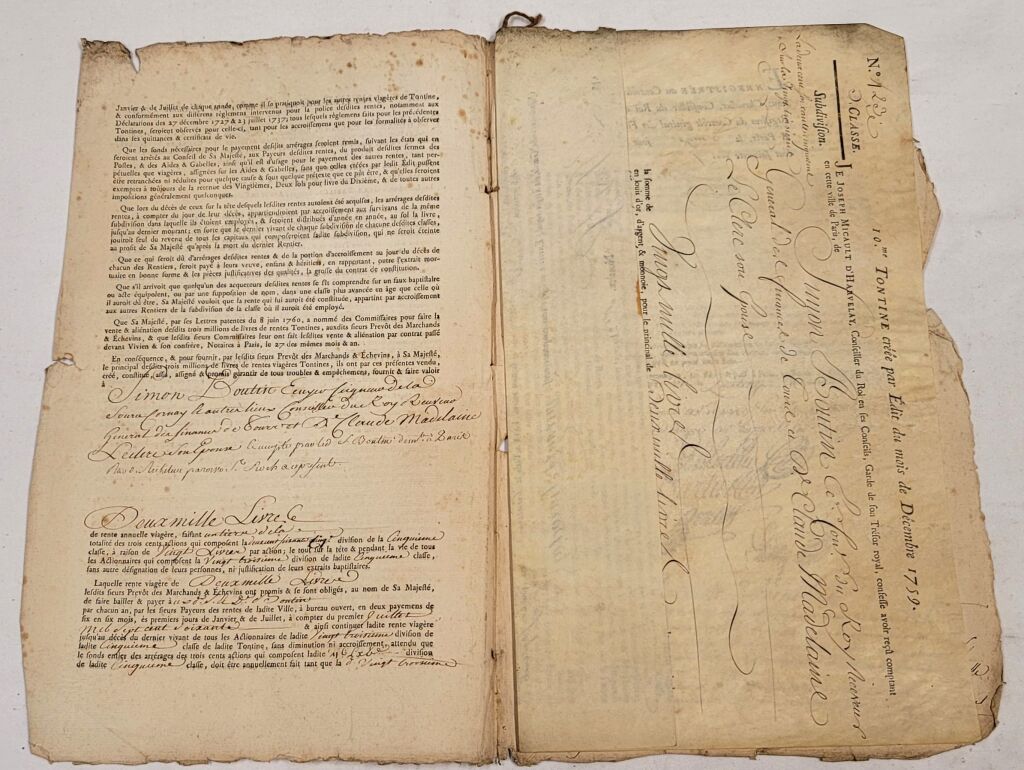 Janvier & de Juillet de chaque année, comme il se pratiquoit pour les autres rentes viagères de Tontine,
& conformément aux différens règlemens intervenus pour la police desdites rentes, notamment aux
Déclarations des 27 décembre 1727 & 23 juillet 1737; tous lesquels règlemens faits pour les précédentes
Tontines, seroient observés pour celle-ci, tant pour les accroissemens que pour les formalités à observer
dans les quittances & certificats de vie.
Que les fonds nécessaires pour le payement desdits arrérages seroient remis, suivant les états qui en
seroient arrêtés au Conseil de Sa Majesté, aux Payeurs desdites rentes, du produit desdites fermes des
Postes, & des Aides & Gabelles, ainsi qu'il est d'usage pour le payement des autres rentes, tant per-
pétuelles que viagères, assignées sur les Aides & Gabelles, sans que celles créées par ledit Edit pussent
être retranchées ni réduites pour quelque cause & sous quelque prétexte que ce pût être, & qu'elles seroient
exemptes à toujours de la retenue des Vingtièmes, Deux sols pour livre du Dixième, & de toutes autres
impositions généralement quelconques.
Que lors du décès de ceux sur la tête desquels lesdites rentes auroient été acquises, les arrérages desdites
rentes, à compter du jour de leur décès, appartiendroient par accroissement aux survivans de la même
subdivision dans laquelle ils étoient employés, & seroient distribués d'année en année, au sol la livre,
jusqu'au dernier mourant; en sorte que le dernier vivant de chaque subdivision de chacune desdites classes,
jouiroit seul du revenu de tous les capitaux qui composeroient ladite subdivision, qui ne seroit éteinte
au profit de Sa Majesté qu'après la mort du dernier Rentier.
Que ce qui seroit dû d'arrérages desdites rentes & de la portion d'accroissement au jour du décès de
chacun des Rentiers, seroit payé à leurs veuve, enfans & héritiers, en rapportant, outre l'extrait mor-
tuaire en bonne forme & les pièces justificatives des qualités, la grosse du contrat de constitution.
Que s'il arrivoit que quelqu'un des acquéreurs desdites rentes se fît comprendre sur un faux baptistaire
ou acte équipolent, ou par une supposition de nom, dans une classe plus avancée en âge que celle où
il auroit dû être, Sa Majesté vouloit que la rente qui lui auroit été constituée, appartînt par accroissement
aux autres Rentiers de la subdivision de la classe où il auroit été employé.
Que Sa Majesté, par ses Lettres patentes du 8 juin 1760, a nommé des Commissaires pour faire la
vente & aliénation desdits trois millions de livres de rentes Tontines, auxdits sieurs Prevôt des Marchands
& Echevins, & que lesdits sieurs Commissaires leur ont fait lesdites vente & aliénation par contrat passé
devant Vivien & son confrère, Notaires à Paris, le 27 des mêmes mois & an.
En conséquence, & pour fournir, par lesdits sieurs Prevôt des Marchands & Echevins, à Sa Majesté,
le principal desdites trois millions de livres de rentes viagères Tontines, ils ont par ces présentes vendu,
créé, constitué, assis, assigné & promis garantir de tous troubles & empêchemens, fournir & faire valoir
à
Simon Boutin Ecuyer Seigneur de la
Cornay & autres lieux Conseiller du Roy Receveur
General des finances de Tours et De Claude Madelaine
Leclerc son Epouse
Deux mille Livres
de rente annuelle viagère, faisant
totalité des trois cents actions qui composent la division de la Cinquieme
classe, à raison de Vingt Livres par action; le tout sur la tête & pendant la vie de tous
les Actionnaires qui composent la Vingt troisieme division de ladite Cinquieme classe,
sans autre désignation de leurs personnes, ni justification de leurs extraits baptistaires.
Laquelle rente viagère de Deux mille Livres
lesdits sieurs Prevôt des Marchands & Echevins ont promis & se sont obligés, au nom de Sa Majesté,
de faire bailler & payer
par chacun an, par les sieurs Payeurs des rentes de ladite Ville, à bureau ouvert, en deux payemens de
six en six mois, ès premiers jours de Janvier & de Juillet, à compter du premier Juillet
Mil Sept cent Soixante & ainsi continuer ladite rente viagère
jusqu'au décès du dernier vivant de tous les Actionnaires de ladite Vingt troisieme division de
ladite Cinquieme classe de ladite Tontine, sans diminution ni accroissement, attendu que
le fonds entier des arrérages des trois cents actions qui composent ladite division
de ladite Cinquieme classe, doit être annuellement fait tant que la Vingt troisieme
10.me TONTINE créée par Edit du mois de Décembre 1759.
N.o
CLASSE.
Subdivision.
JE JOSEPH MICAULT D'HARVELAY, Conseiller du Roi en ses Conseils, Garde de son Trésor royal, confesse avoir reçû comptant
en cette ville de Paris, de
Simon Boutin Ecer Conr du Roy Receveur
General des finances de Tours & De Claude Madelaine
Le Clerc son Epouse
la somme de Vingt mille livres
en louis d'or, d'argent, & monnoie, pour le principal de Deux mille livres